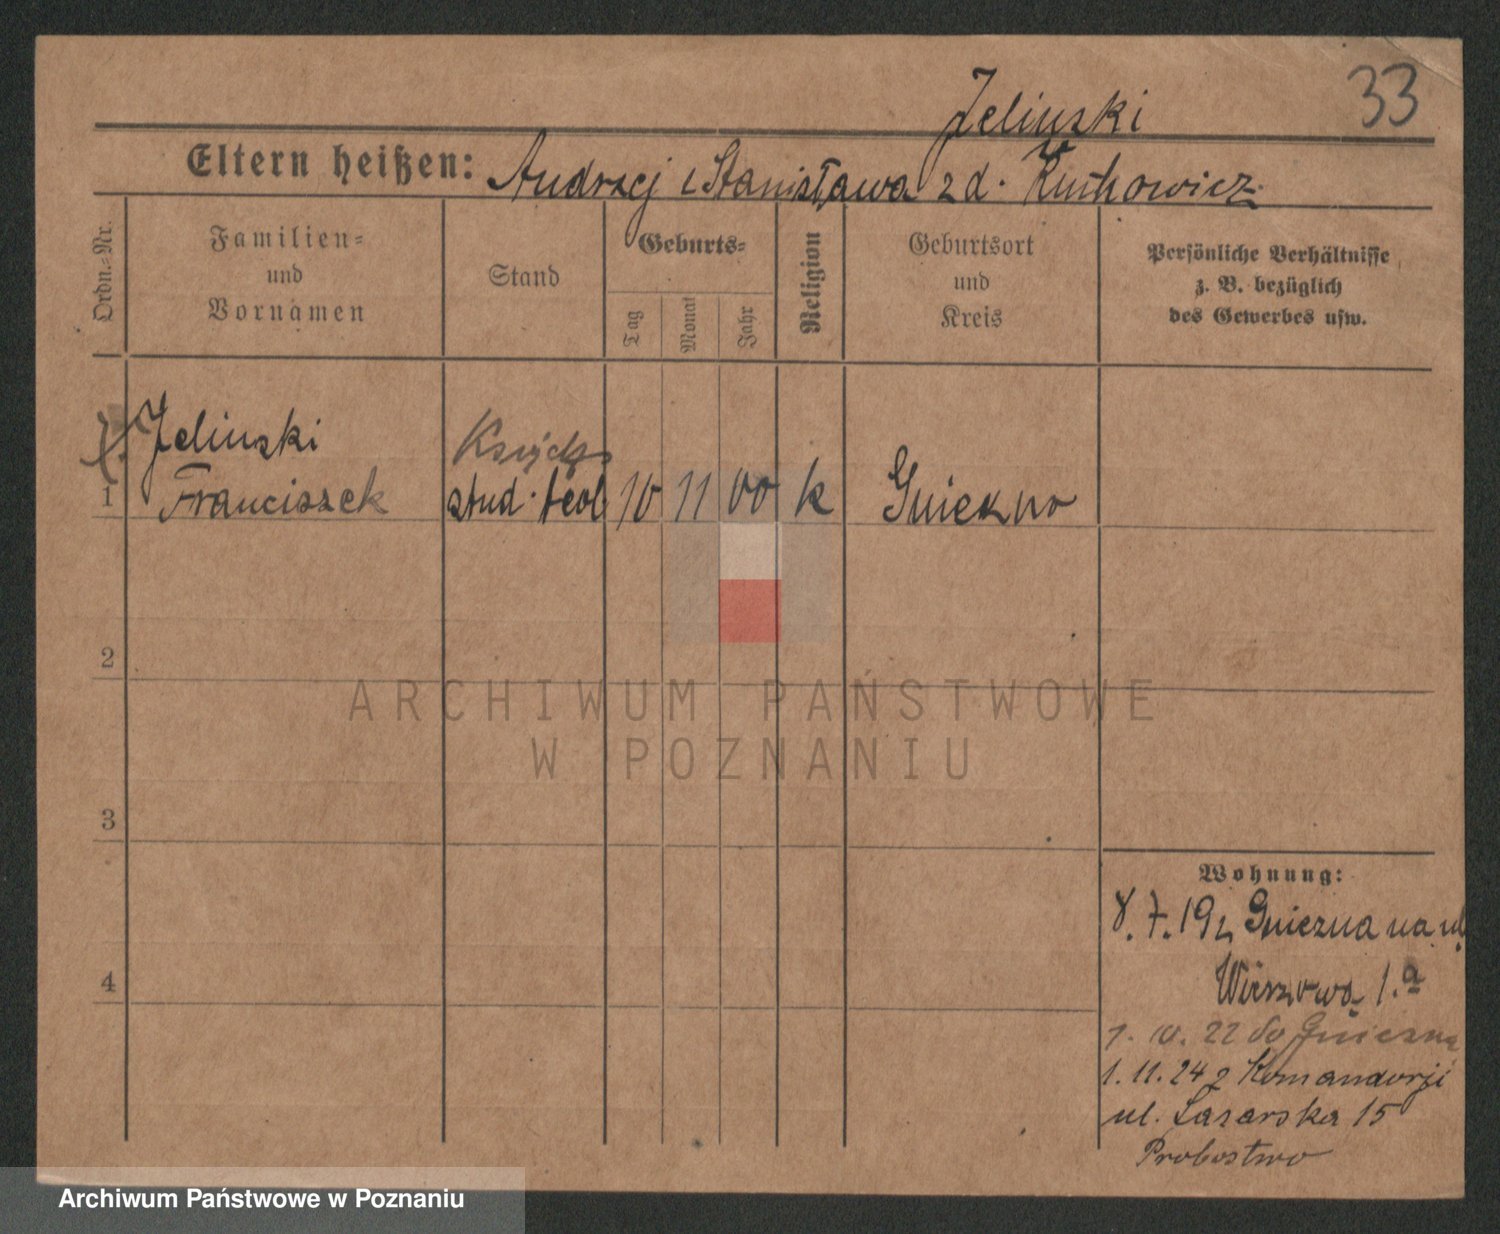 33
Jelinski
Eltern heißen: Andrzej i Stanisława z d. Kuchowicz
Ordn.-Nr.
Familien-
und
Vornamen
Stand
Geburts-
Tag
Monat
Jahr
Religion
Geburtsort
und
Kreis
Persönliche Verhältnisse
z. B. bezüglich
des Gewerbes usw.
Jelinski
Ksiądz
1 Franciszek stud. teol. 10 11 00 k Gniezno
2
ARCHIWUM PAŃSTWOWE
W POZNANIU
3
Wohnung:
8.7.19 z Gniezna na ul
4
1.a
22 do Gniezna
1.11.24 z Komandorji
ul. Łazarska 15
Probostwo
Archiwum Państwowe w Poznaniu